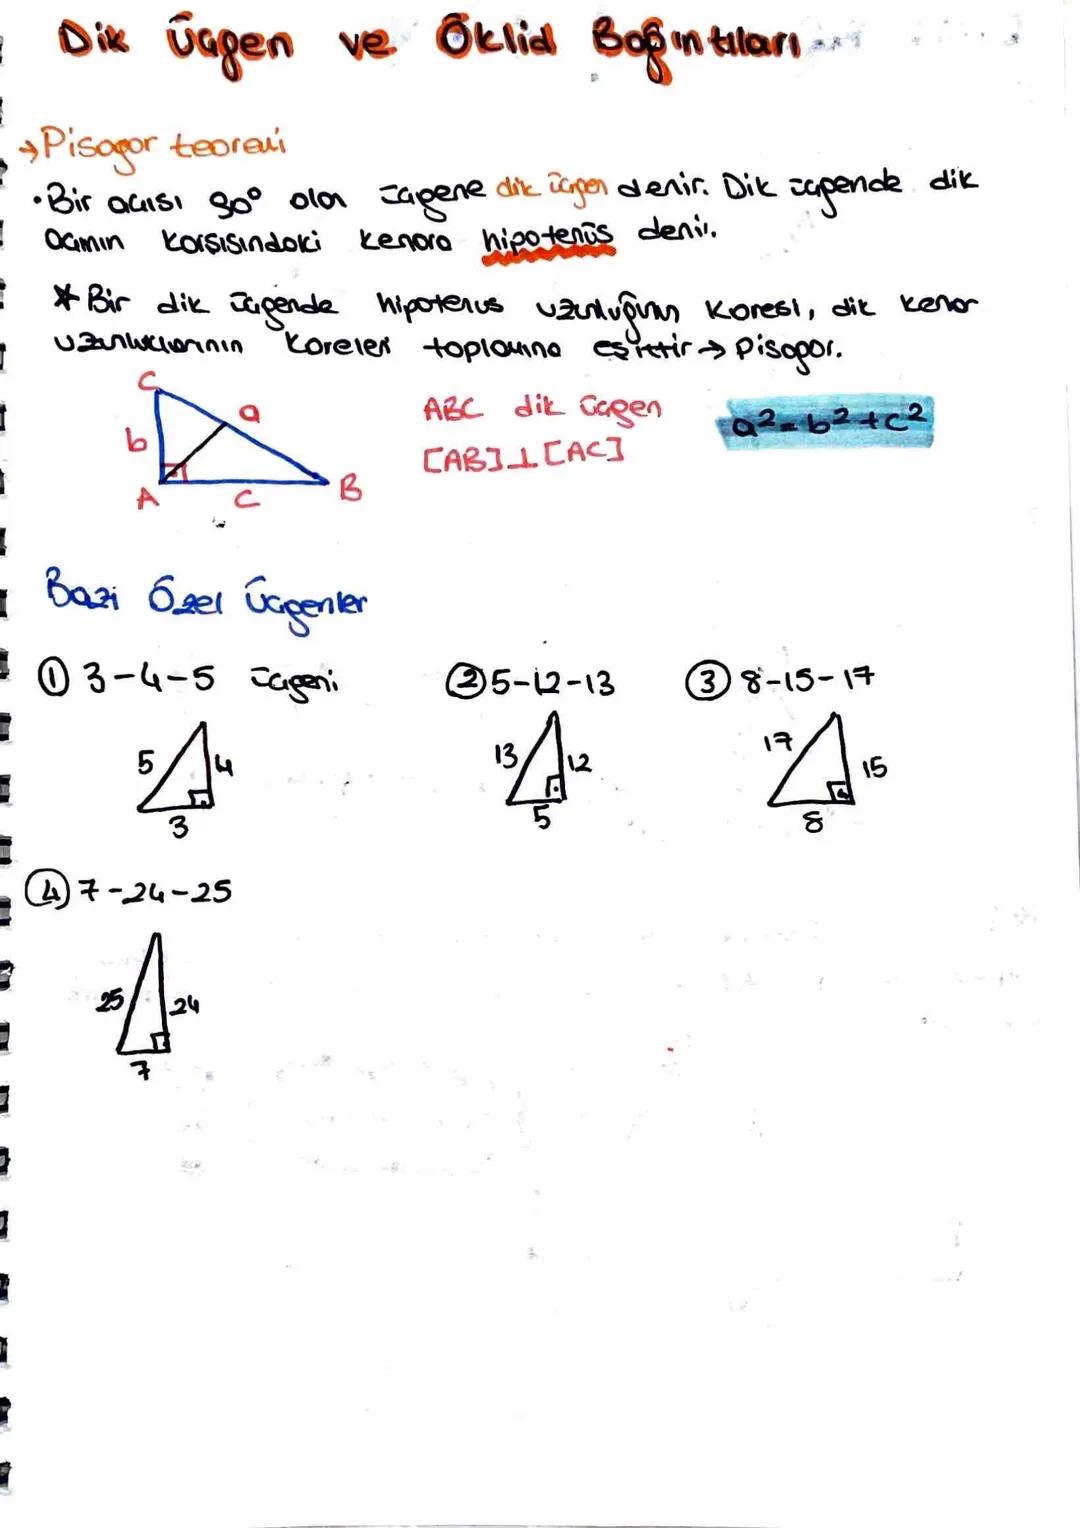 Dik Üçgen ve Öklid Bağıntıları
→Pisagor teoremi
•Bir açısı 90° olan üçgene dik üçgen denir. Dik üçgende dik
açının karşısındaki kenara hipotenüs denir.
* Bir dik üçgende hipotenüs uzunluğunun karesi, dik kenar
uzunluklarının kareleri toplamına eşittir → Pisagor.
C
a
b
A
c
B
ABC dik üçgen
[AB]⊥[AC]
a²=b²+c²
Bazı Özel Üçgenler
① 3-4-5 üçgeni
② 5-12-13
③ 8-15-17
5
4
3
13
12
5
17
15
8
④ 7-24-25
25
24
7